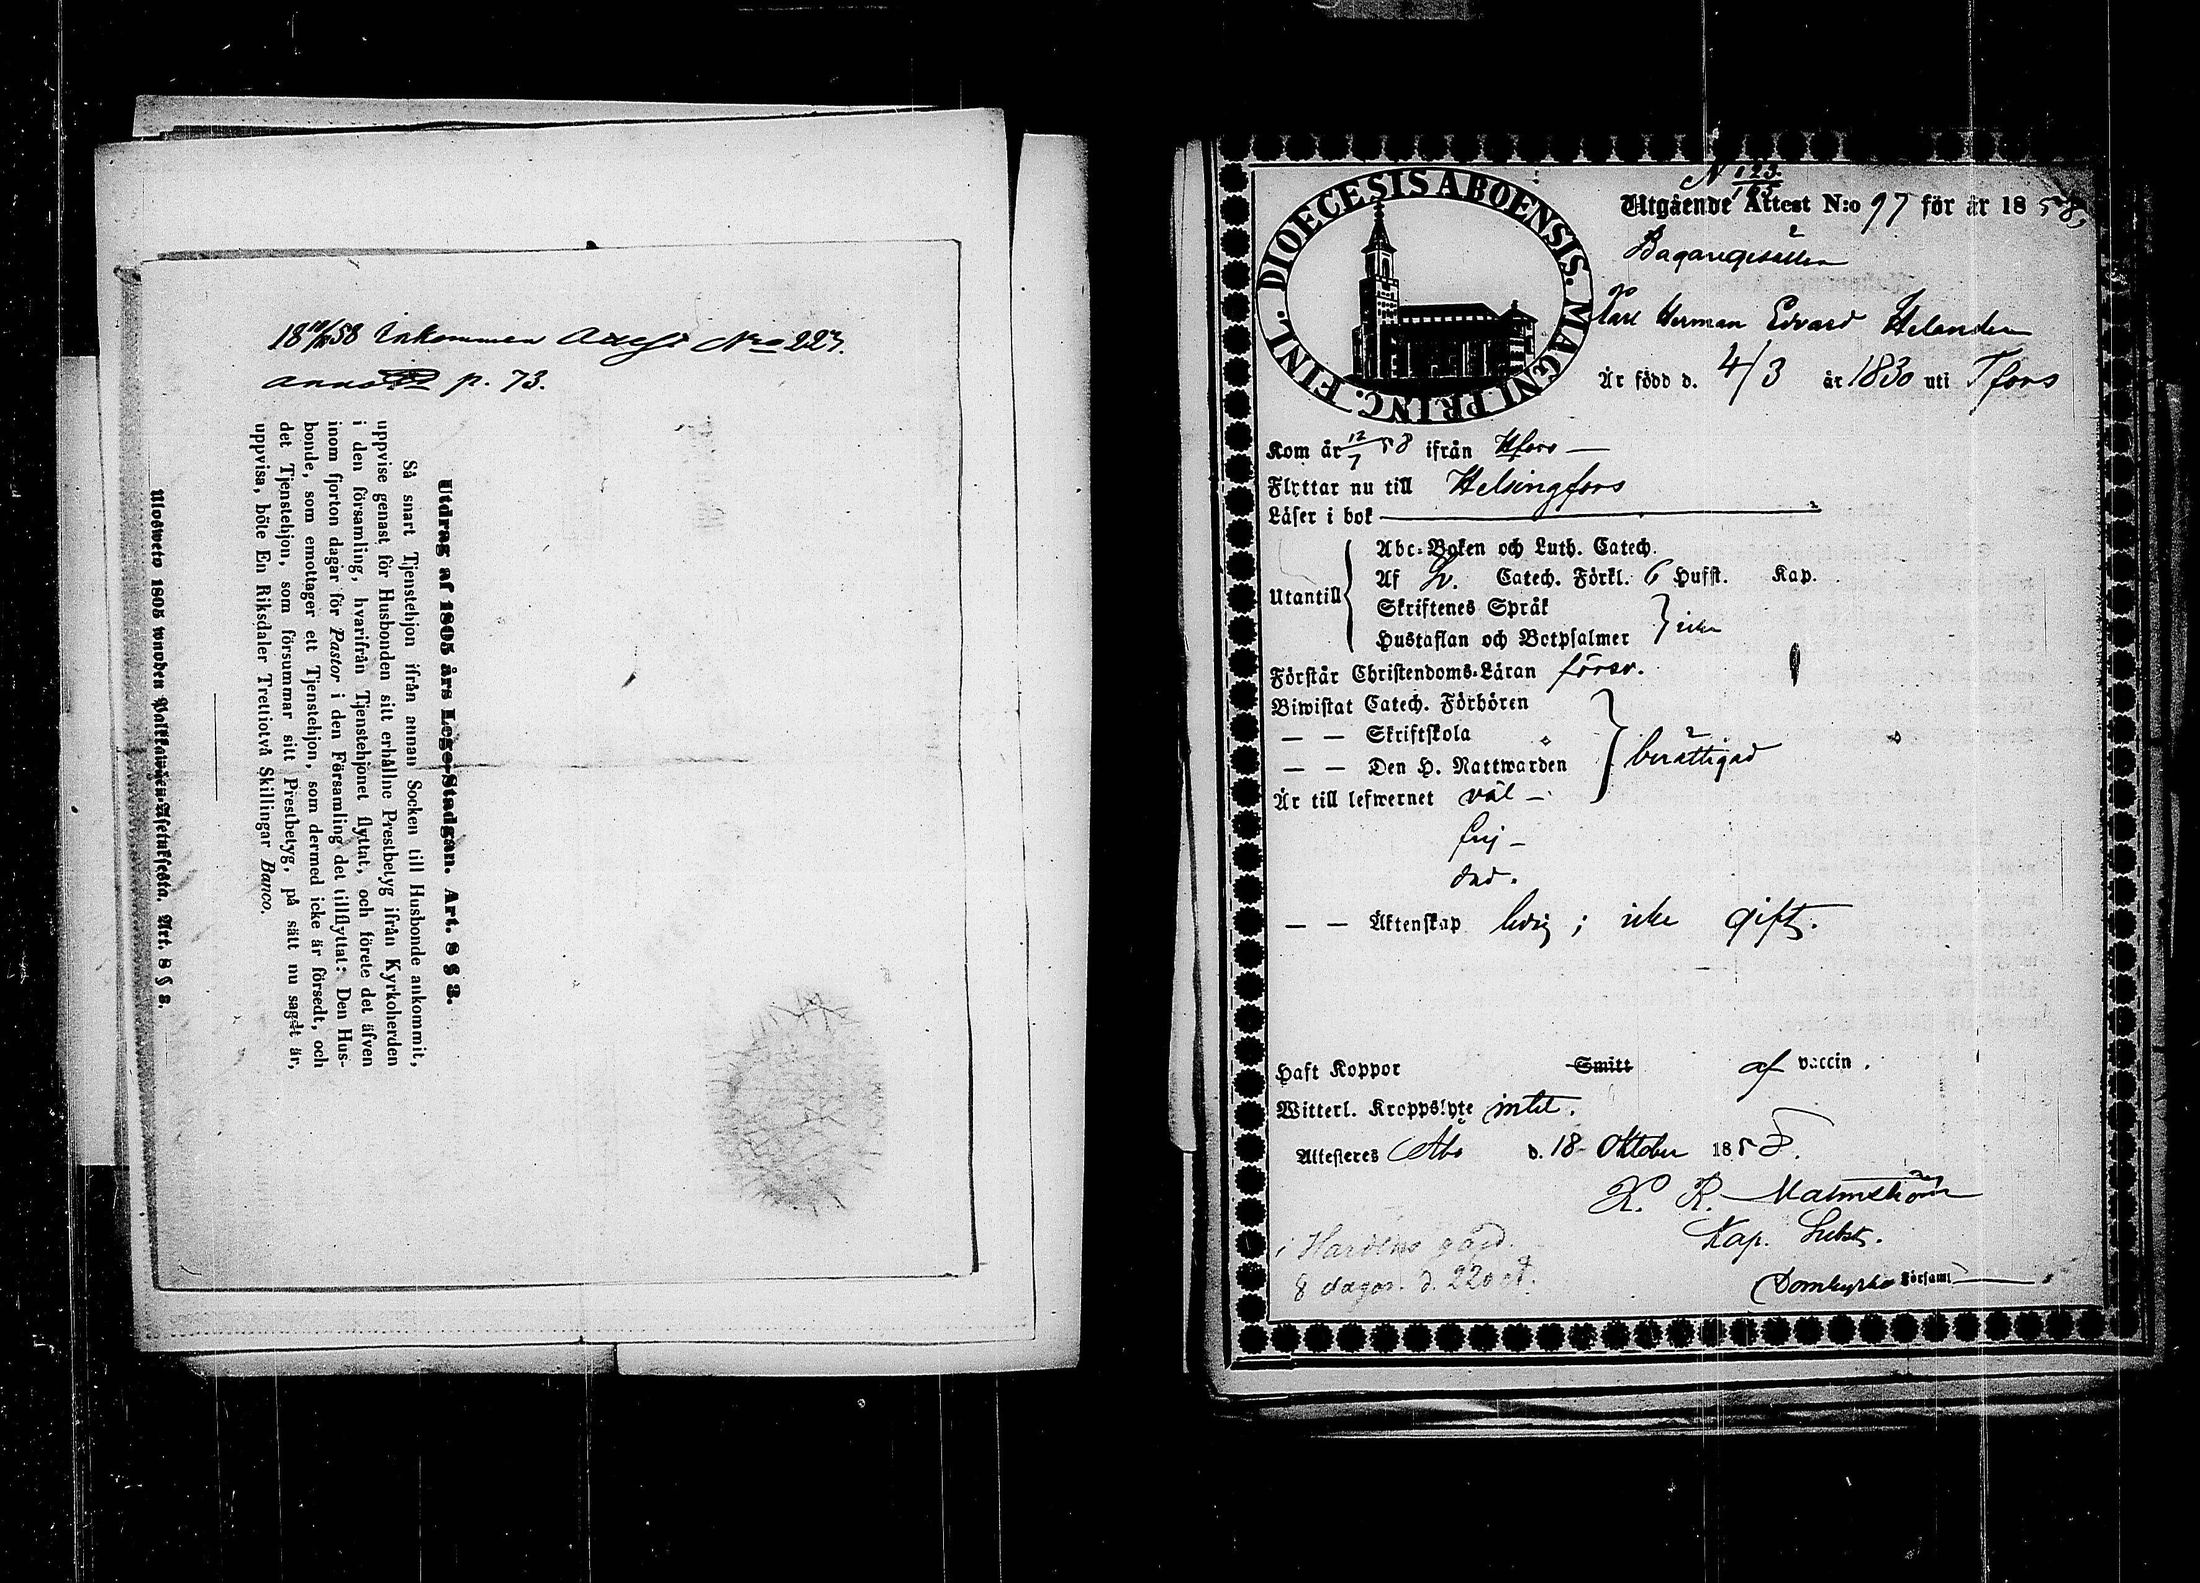 18 58 Inkommen Attest No 227.
anno p. 73.
Utdrag af 1805 års Lego-Stadgan. Art. 8 § 3.
Så snart Tjenstehjon ifrån annan Socken till Husbonde ankommit,
uppvise genast för Husbonden sitt erhållne Prestbetyg ifrån Kyrkoherden
i den församling, hvarifrån Tjenstehjonet flyttat, och förete det äfven
inom fjorton dagar för Pastor i den Församling det tillflyttat: Den Hus-
bonde, som emottager ett Tjenstehjon, som dermed icke är försedt, och
det Tjenstehjon, som försummar sitt Prestbetyg, på sätt nu sagdt är,
uppvisa, böte En Riksdaler Trettiotvå Skillingar Banco.
Ulosweto 1805 wuoden Palkkawäen-Asetuksesta. Art. 8 § 3.
DIOECESIS ABOENSIS. MAGNI PRINC. FINL.
N 123.
165
Utgående Attest N:o 97 för år 1858,
Bagaregesällen
Karl Herman Edvard Helander
Är född d. 4/3 år 1830 uti Tfors
Kom år 12/7 58 ifrån Hfors —
Flyttar nu till Helsingfors
Läser i bok
Abc-Boken och Luth. Catech.
Af Sv. Catech. Förkl. 6 Hufst. Kap.
Utantill
Skriftenes Språk
Hustaflan och Botpsalmer } icke
Förstår Christendoms-Läran försv.
Biwistat Catech. Förhören
— — Skriftskola
— — Den H. Nattwarden } berättigad
Är till lefwernet väl —
frij —
— — Äktenskap ledig; icke gift.
Haft Koppor Smitt af vaccin.
Witterl. Kroppslyte intet.
Attesteres Åbo d. 18 Oktober 1858.
K. R. Malmström
Kap. Subst.
i Hardens gård.
8 dagar. d. 22 oct.
Domkyrko Församl.